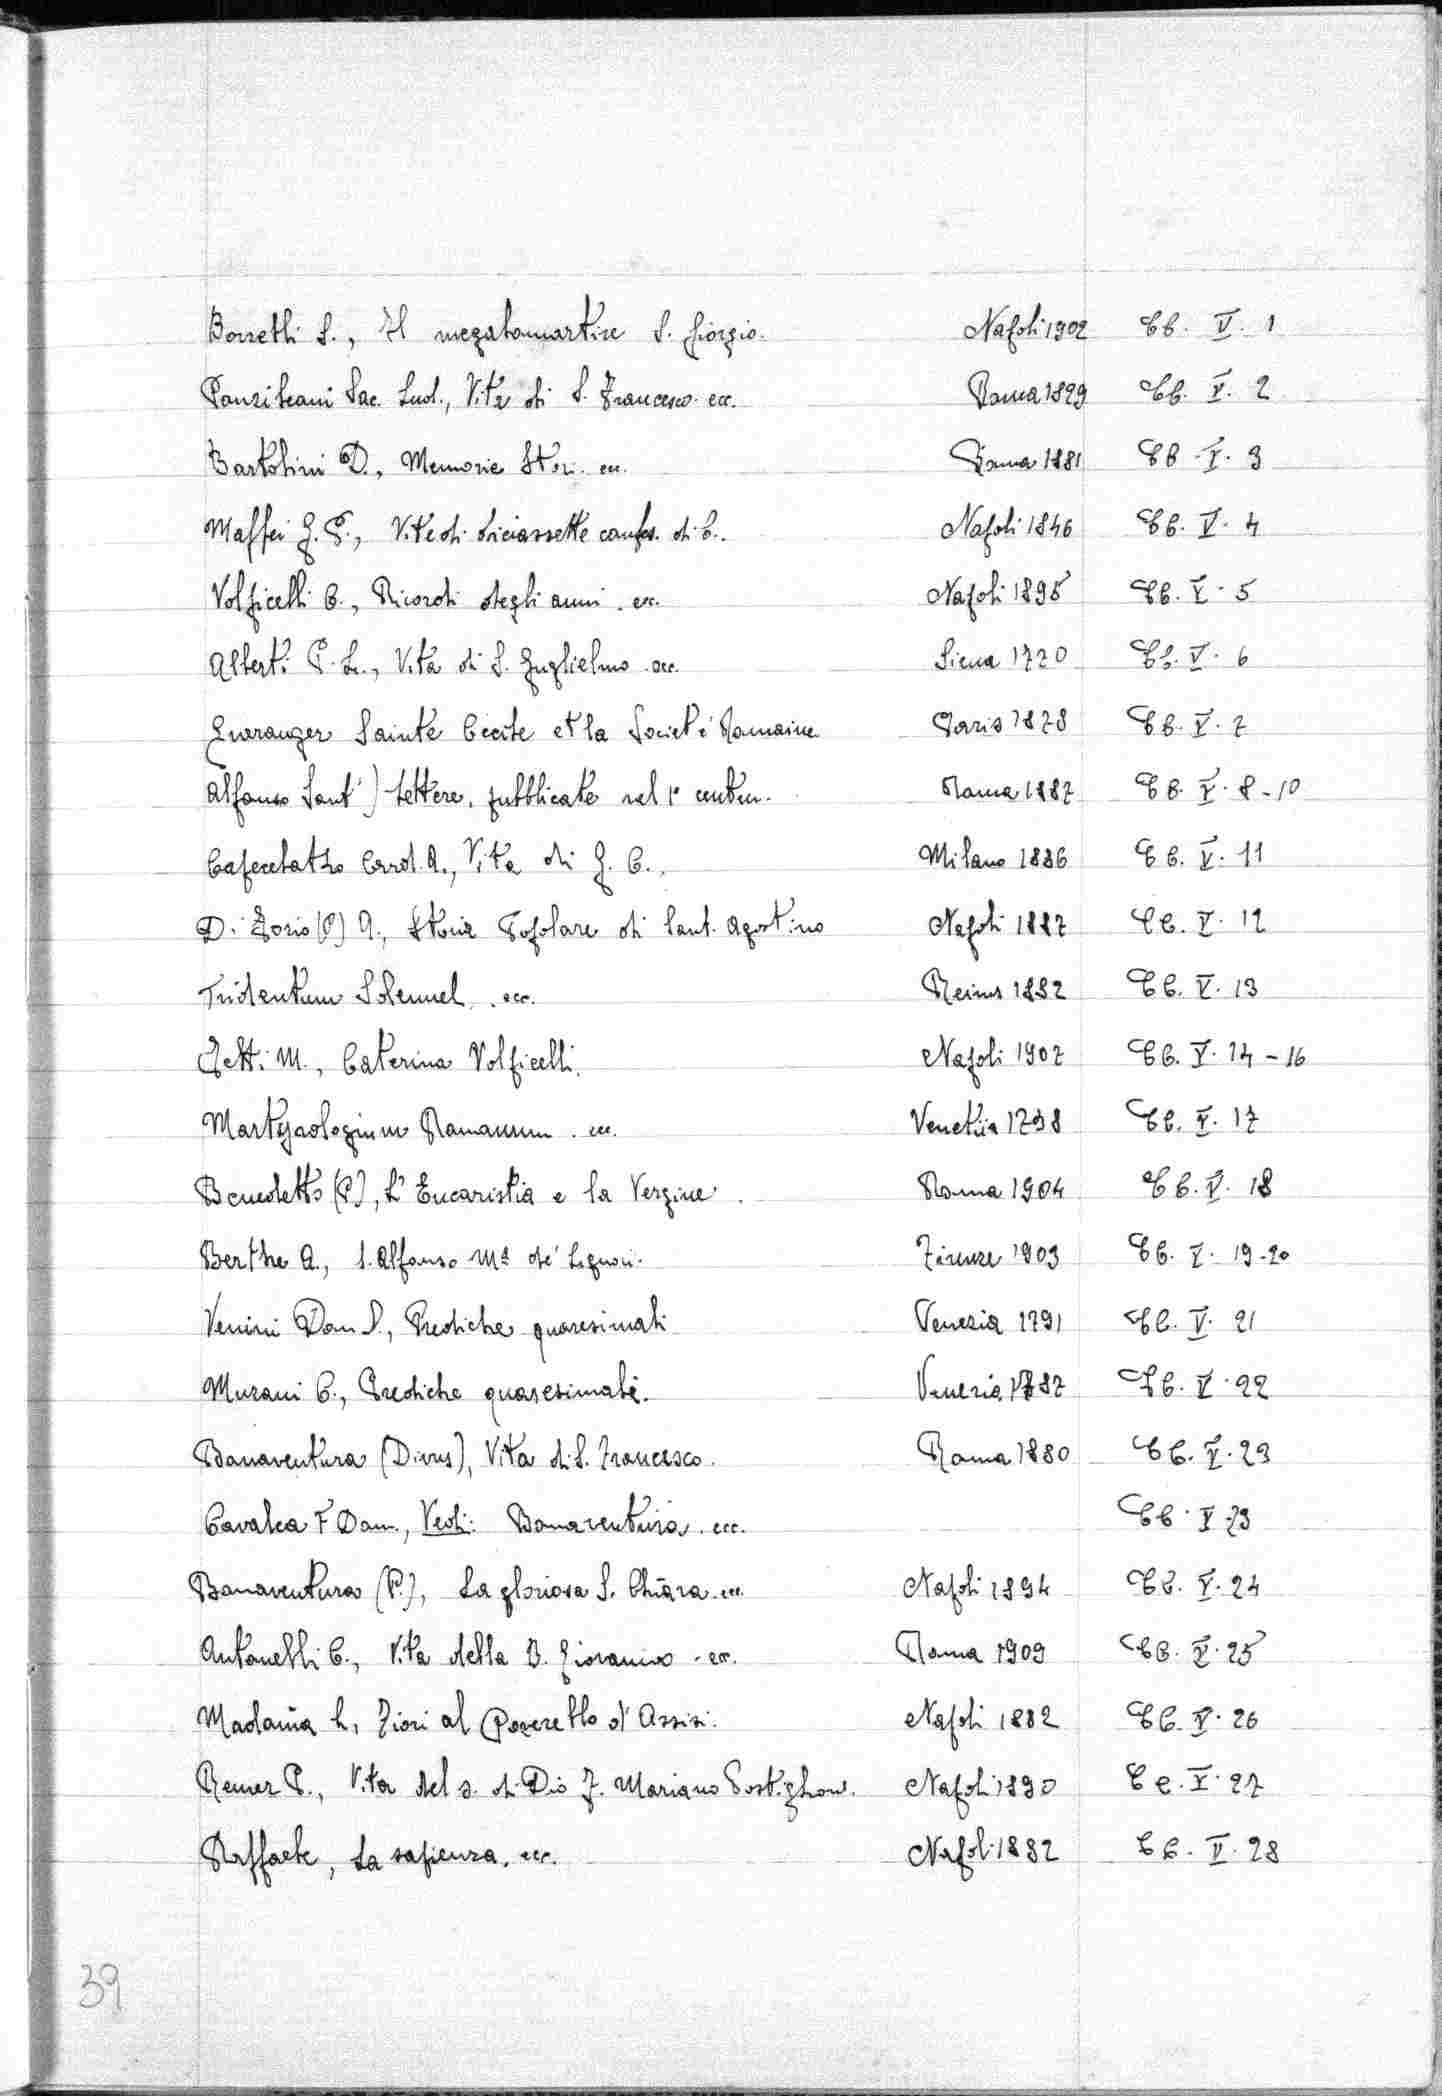 Borrelli S., Il megalomartire S. Giorgio. Napoli 1902 CC. V. 1
Panzileani Sac. Lud., Vita di S. Francesco. ecc. Roma 1829 CC. V. 2
Bartolini D., Memorie Stori. ecc. Roma 1881 CC V. 3
Maffei G. P., Vite di diciassette confes. di C.. Napoli 1846 CC. V. 4
Volpicelli C., Ricordi degli anni. ecc. Napoli 1895 CC. V. 5
Alberti P. L., Vita di S. Guglielmo. ecc. Siena 1720 CC. V. 6
Gueranger Sainte Cecile et la Societé Romaine Paris 1878 CC. V. 7
Alfonso Sant') Lettere, pubblicate nel 1° centen. Roma 1887 CC. V. 8-10
Capecelatro Card. A., Vita di G. C.. Milano 1886 CC. V. 11
Di Iorio (P) A., Storia Popolare di Sant. Agostino Napoli 1887 CC. V. 12
Tridentum Solemnel. ecc. 1882 CC. V. 13
Jetti M., Caterina Volpicelli. Napoli 1907 CC. V. 14-16
Martyrologium Romanum. ecc. Venetiis 1798 CC. V. 17
Benedetto (P), L' Eucaristia e la Vergine. Roma 1904 CC. V. 18
Berthe A., S. Alfonso Mª de' Liguori. Firenze 1903 CC. V. 19-20
Venini Don I., Prediche quaresimali Venezia 1791 CC. V. 21
Murani C., Prediche quaresimali. Venezia 1787 CC. V. 22
Bonaventura (Divus), Vita di S. Francesco. Roma 1880 CC. V. 23
Cavalca F Dom., Vedi: Bonaventura. ecc. CC. V 23
Bonaventura (P.), La gloriosa S. Chiara. ecc. Napoli 1894 CC. V. 24
Antonelli C., Vita della B. Giovanna. ecc. Roma 1909 CC. V. 25
Madama L, Fiori al Poverello d' Assisi. Napoli 1882 CC. V. 26
Remer P., Vita del s. di Dio F. Mariano Postiglione. Napoli 1890 CC. V. 27
Raffaele, La sapienza. ecc. Napoli 1882 CC. V. 28
39